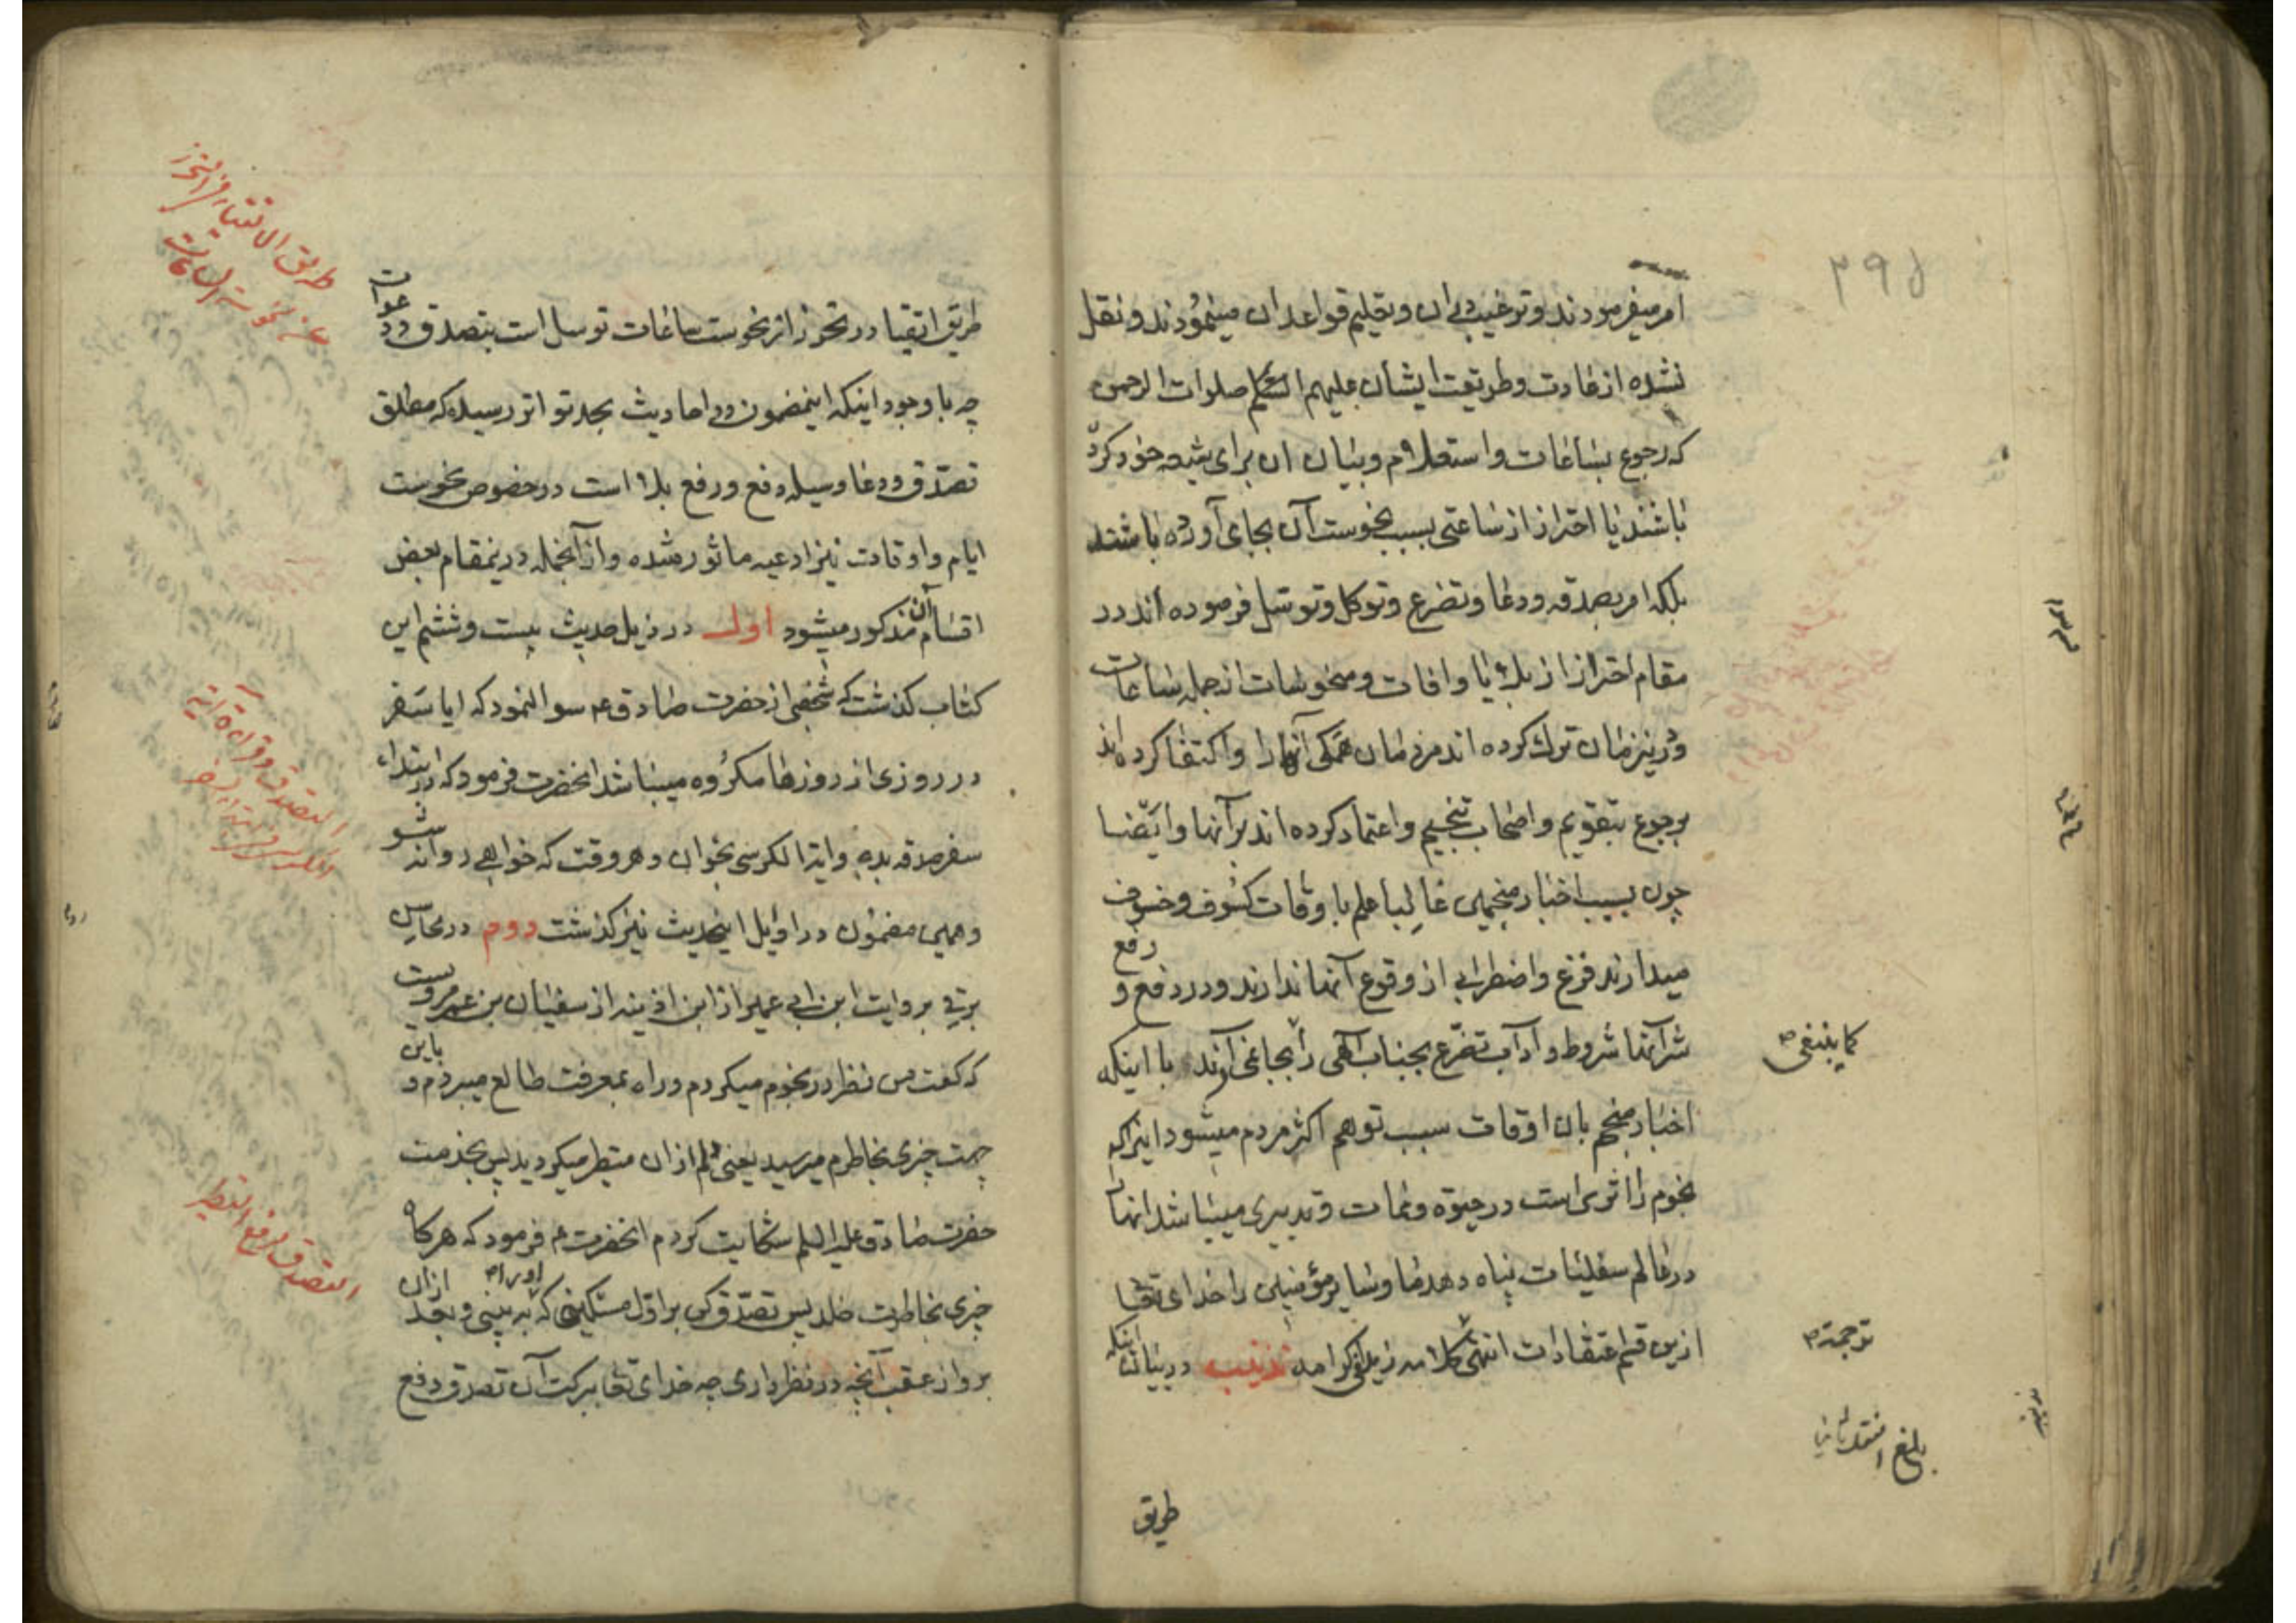 ۲۹۵
امر میفرمودند و ترغیب بان و تعلیم قواعد ان مینمودند و نقل
نشده از عادت و طریقت ایشان علیهم السلام صلوات الرحمن
که رجوع بساعات و استعلام و بیان ان برای شیعه خود کرده
باشند یا احتراز از ساعتی بسبب نحوست آن بجای آورده باشند
بلکه امر بصدقه و دعا و تضرع و توکل و توسل فرموده اند در
مقام احتراز از بلایا و افات و منحوسات از جمله ساعات
و درینزمان ترك کرده اند مردمان همکی آنها را و اکتفا کرده اند
برجوع بتقویم و اصحاب تنجیم و اعتماد کرده اند بر آنها و ایضا
چون بسبب اخبار منجمین غالبا علم باوقات کسوف و خسوف
میدارند فزع و اضطرابی از وقوع آنها ندارند و در دفع و رفع
شر آنها شروط و آداب تضرع بجناب الهی را بجا نمی آورند با اینکه
کما ینبغی
اخبار منجم بان اوقات سبب توهم اکثر مردم میشود اینرا که
نجوم را اثری است در حیوة و ممات و تدبیری میباشد انها را
در عالم سفلیات پناه دهد ما و سایر مؤمنین را خدای تعالی
ازین قسم اعتقادات انتهی کلامه زید اکرامه تذنیب در بیان اینکه
ترجمة
بلغ
طریق
طریق اتقیا در تحرز از نحوست ساعات توسل است بتصدق و دعوات
چه با وجود اینکه اینمضمون در احادیث بحد تواتر رسیده که مطلق
تصدق و دعا وسیله دفع و رفع بلا است در خصوص نحوست
ایام و اوقات نیز ادعیه ماثور شده و از آنجمله درینمقام بعض
اقسام آن مذکور میشود اول در ذیل حدیث بیست و ششم این
کتاب کذشت که شخصی از حضرت صادق ع سوال نمود که ایا سفر
در روزی از روزها مکروه میباشد انحضرت فرمود که در ابتداء
سفر صدقه بده و ایة الکرسی بخوان و هر وقت که خواهی روانه شو
و همین مضمون در اوایل اینحدیث نیز کذشت دوم در محاسن
برقی بروایت ابن ابی عمیر از ابن اذینه از سفیان بن عمر مرویست
که کفت من نظر در نجوم میکردم و راه بمعرفت طالع میبردم و باین
جهت چیزی بخاطرم میرسید یعنی دلم ازان متطیر میکردید پس بخدمت
حضرت صادق علیه السلم شکایت کردم انحضرت ع فرمود که هر کاه
چیزی بخاطرت خلد پس تصدق کن بر اول مسکینی که او را به بینی و بعد ازان
برو از عقب آنچه در نظر داری چه خدای تعا ببرکت آن تصدق دفع
طریق الاتقیاء فی التحرز
عن نحوسة الساعات
التصدق و قراءة آیة
الکرسی
التصدق لدفع التطیر